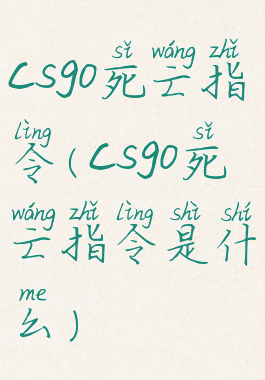 sǐ wáng zhǐ
CS90死亡指
lìng sǐ
令(CS90死
wáng zhǐ lìng shì shí
亡指令是什
me
么)